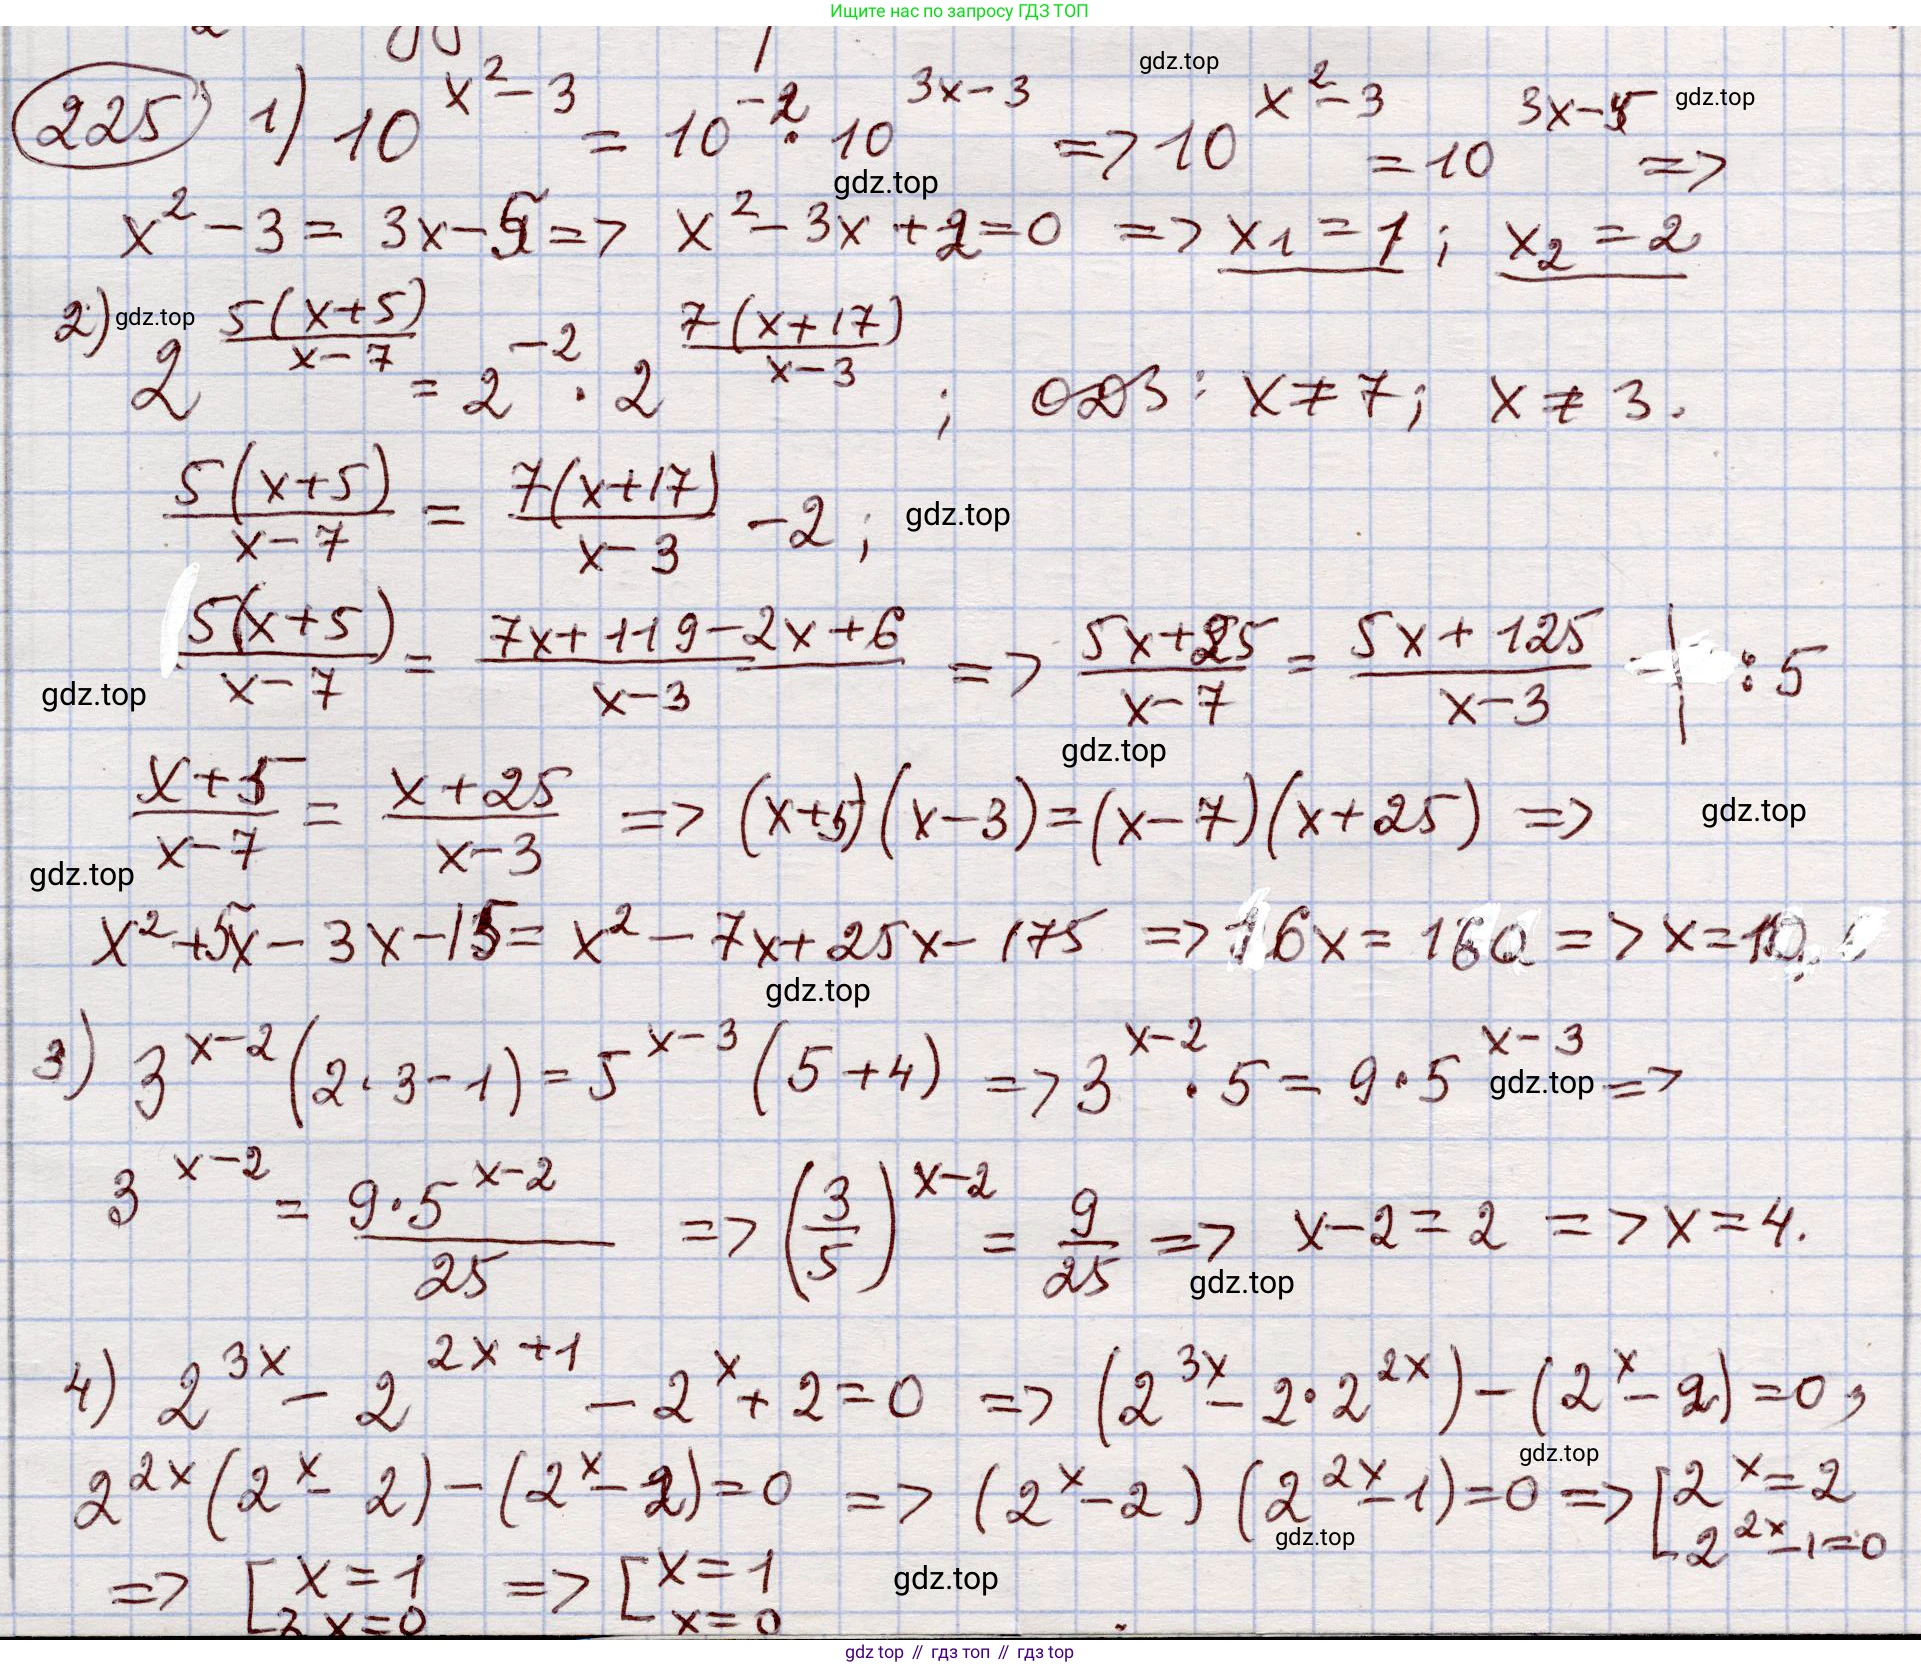 Ищите нас по запросу ГДЗ ТОП
225 1) 10^(x²-3) = 10^(-2) · 10^(3x-3) => 10^(x²-3) = 10^(3x-5) =>
gdz.top
gdz.top
gdz.top
x² - 3 = 3x - 5 => x² - 3x + 2 = 0 => x₁ = 1; x₂ = 2
2) 2^(5(x+5)/(x-7)) = 2^(-2) · 2^(7(x+17)/(x-3)); ОДЗ: x ≠ 7; x ≠ 3.
gdz.top
5(x+5)/(x-7) = 7(x+17)/(x-3) - 2;
gdz.top
5(x+5)/(x-7) = (7x+119-2x+6)/(x-3) => (5x+25)/(x-7) = (5x+125)/(x-3) | : 5
gdz.top
gdz.top
(x+5)/(x-7) = (x+25)/(x-3) => (x+5)(x-3) = (x-7)(x+25) =>
gdz.top
gdz.top
x² + 5x - 3x - 15 = x² - 7x + 25x - 175 => 16x = 160 => x = 10.
gdz.top
3) 3^(x-2) (2·3-1) = 5^(x-3) (5+4) => 3^(x-2) · 5 = 9 · 5^(x-3) =>
gdz.top
3^(x-2) = 9·5^(x-2)/25 => (3/5)^(x-2) = 9/25 => x-2 = 2 => x = 4.
gdz.top
4) 2^(3x) - 2^(2x+1) - 2^x + 2 = 0 => (2^(3x) - 2·2^(2x)) - (2^x - 2) = 0;
gdz.top
2^(2x) (2^x - 2) - (2^x - 2) = 0 => (2^x - 2) (2^(2x) - 1) = 0 => [2^x = 2
2^(2x) - 1 = 0
gdz.top
=> [x = 1 => [x = 1
gdz.top
2x = 0 x = 0
gdz top // гдз топ // гдз top